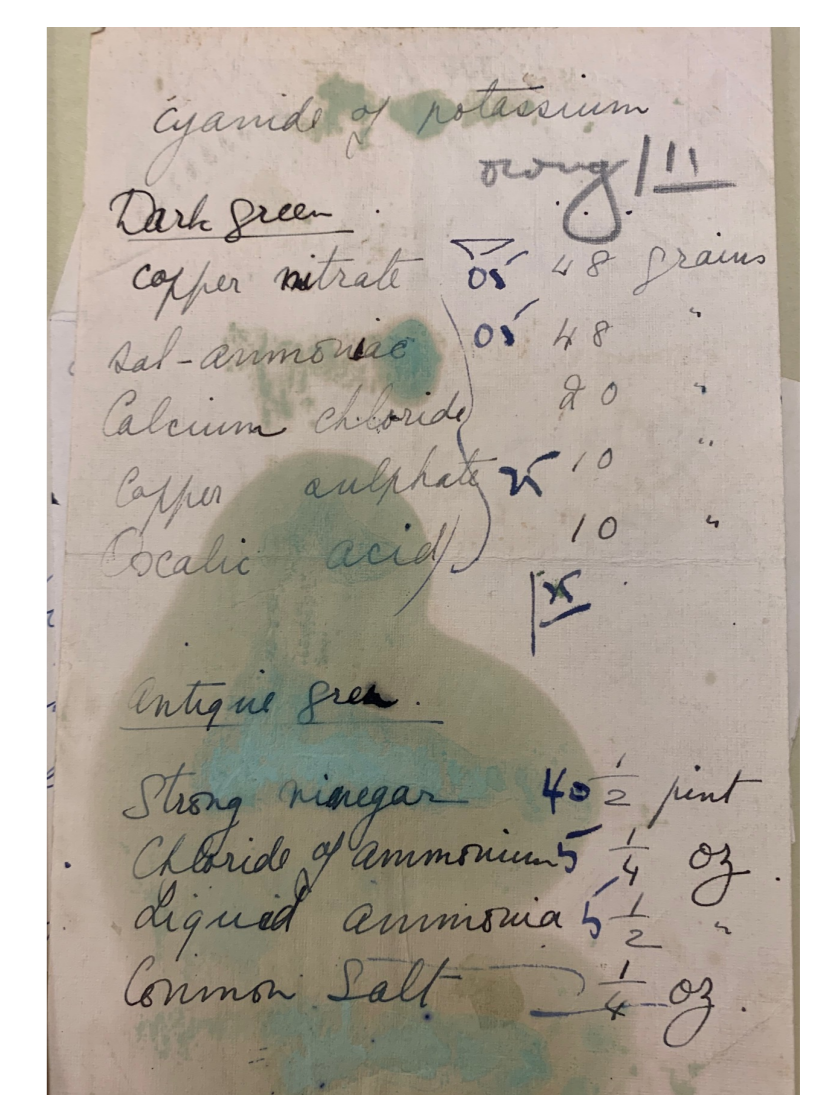 cyanide of potassium
Dark green.
copper nitrate 48 grains
sal-ammoniac 48 "
Calcium chloride 20 "
Copper sulphate 10 "
Oxcalic acid 10 "
Antique green.
Strong vinegar 40 1/2 pint
Chloride of ammonium 5 1/4 oz.
Liquid ammonia 5 1/2 "
Common Salt 1/4 oz.